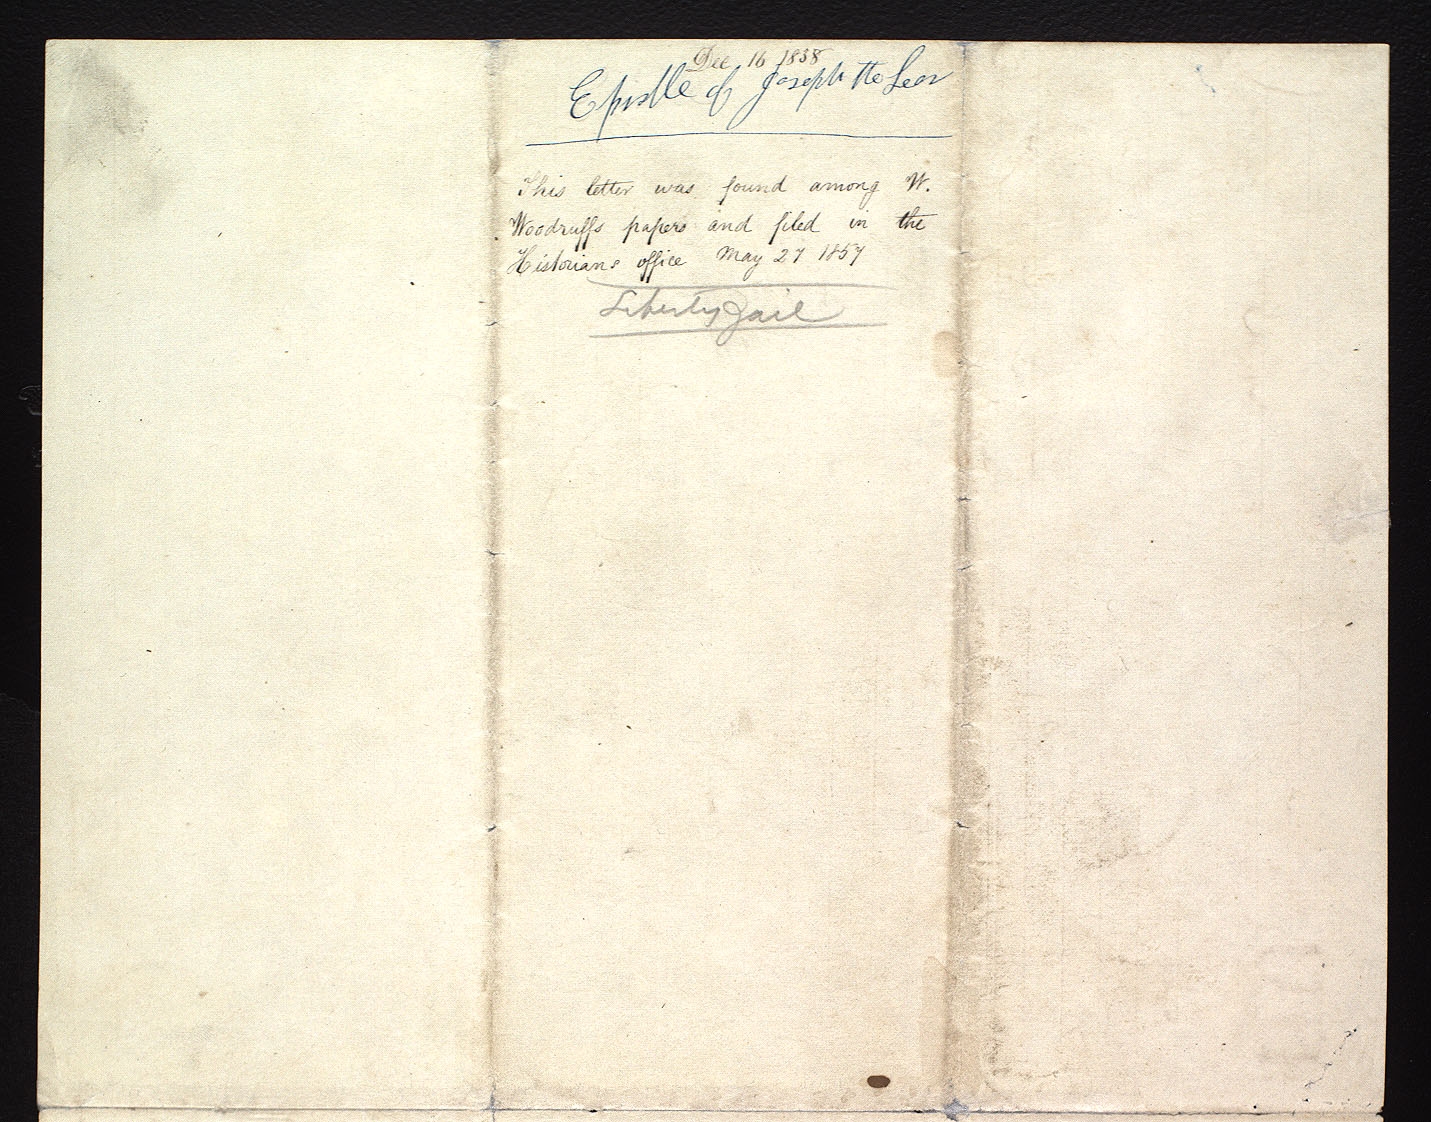 Dec 16 1838
Epistle of Joseph the Seer
This letter was found among W.
Woodruffs papers and filed in the
Historians office May 27 1857
Liberty Jail